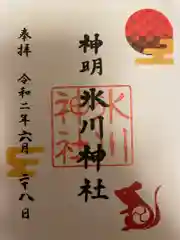 神明
氷川神社
氷川
神社
奉拝 令和二年六月二十八日